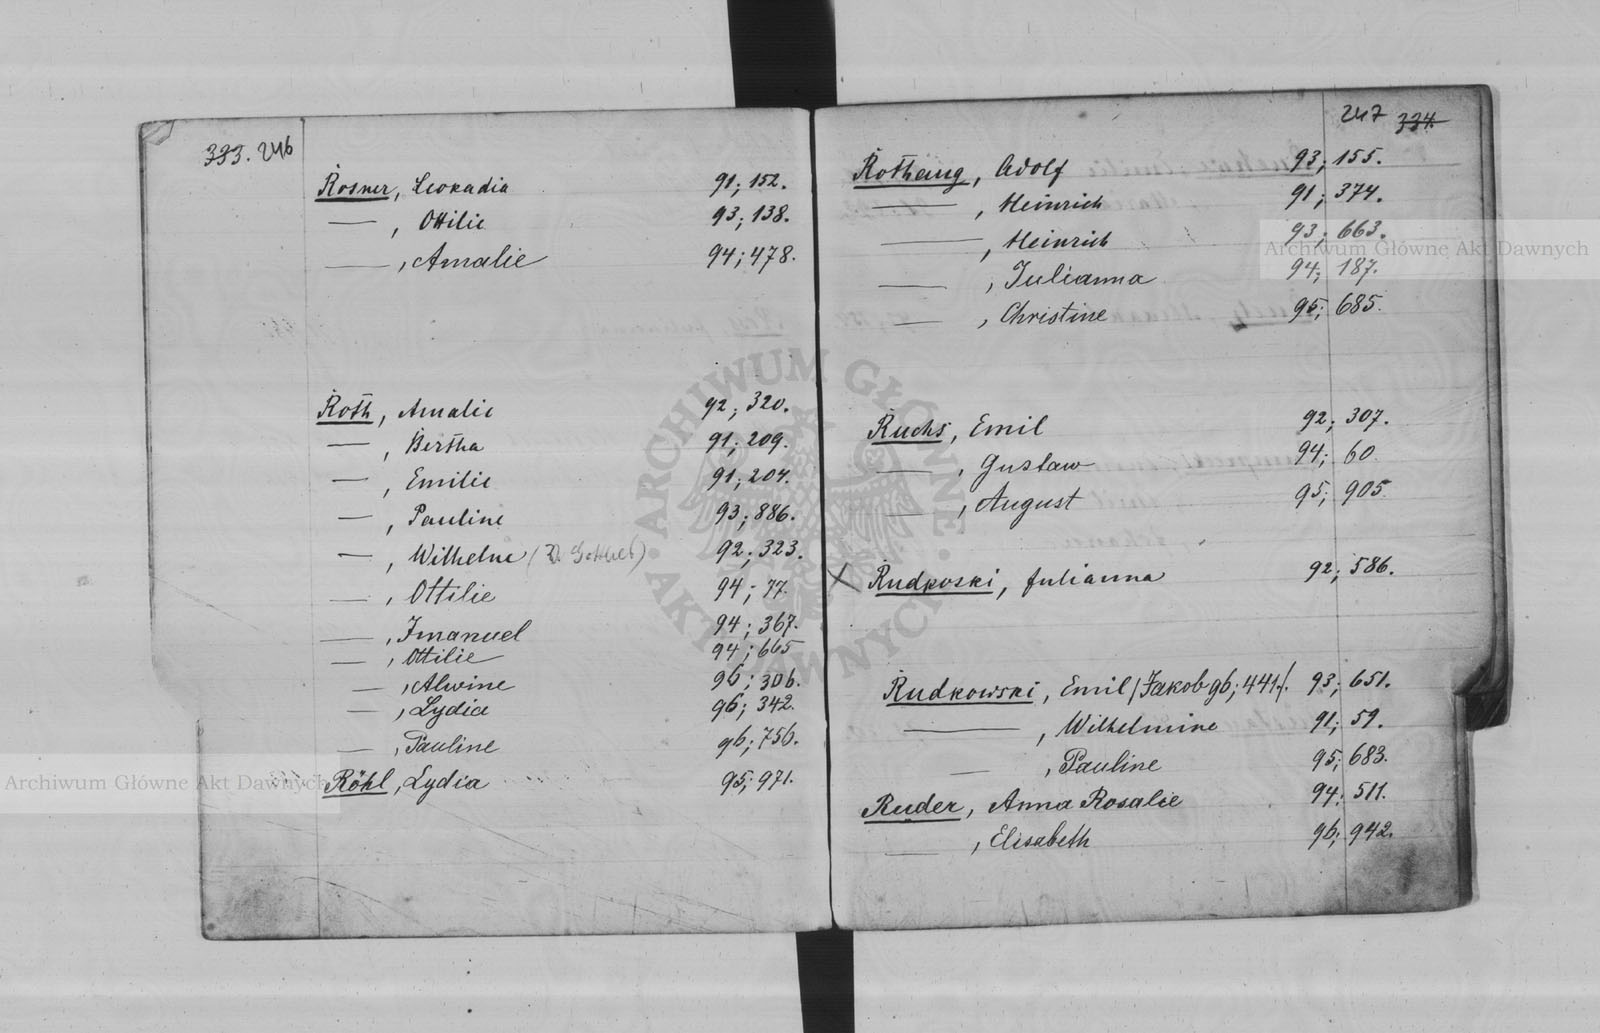 333. 246
Rosner, Leokadia 91; 152.
—, Ottilie 93; 138.
—, Amalie 94; 478.
Roth, Amalie 92; 320.
—, Bertha 91; 209.
—, Emilie 91; 204.
—, Pauline 93; 886.
—, Wilhelm 92; 323.
—, Ottilie 94; 77.
—, Imanuel 94; 367.
—, Ottilie 94; 665
—, Alwine 96; 306.
—, Lydia 96; 342.
—, Pauline 96; 756.
Röhl, Lydia 95; 971.
247 334.
Rothaug, Adolf 93; 155.
—, Heinrich 91; 374.
—, Heinrich 93; 663.
—, Julianna 94; 187.
—, Christine 95; 685.
Ruchs, Emil 92; 307.
—, Gustaw 94; 60
—, August 95; 905.
X Rudkoski, Julianna 92; 586.
Rudkowski, Emil /Jakob 96; 441./. 93; 651.
—, Wilhelmine 91; 59.
—, Pauline 95; 683.
Ruder, Anna Rosalie 94; 511.
—, Elisabeth 96; 942.
Archiwum Główne Akt Dawnych
Archiwum Główne Akt Dawnych
ARCHIWUM GŁÓWNE AKT DAWNYCH